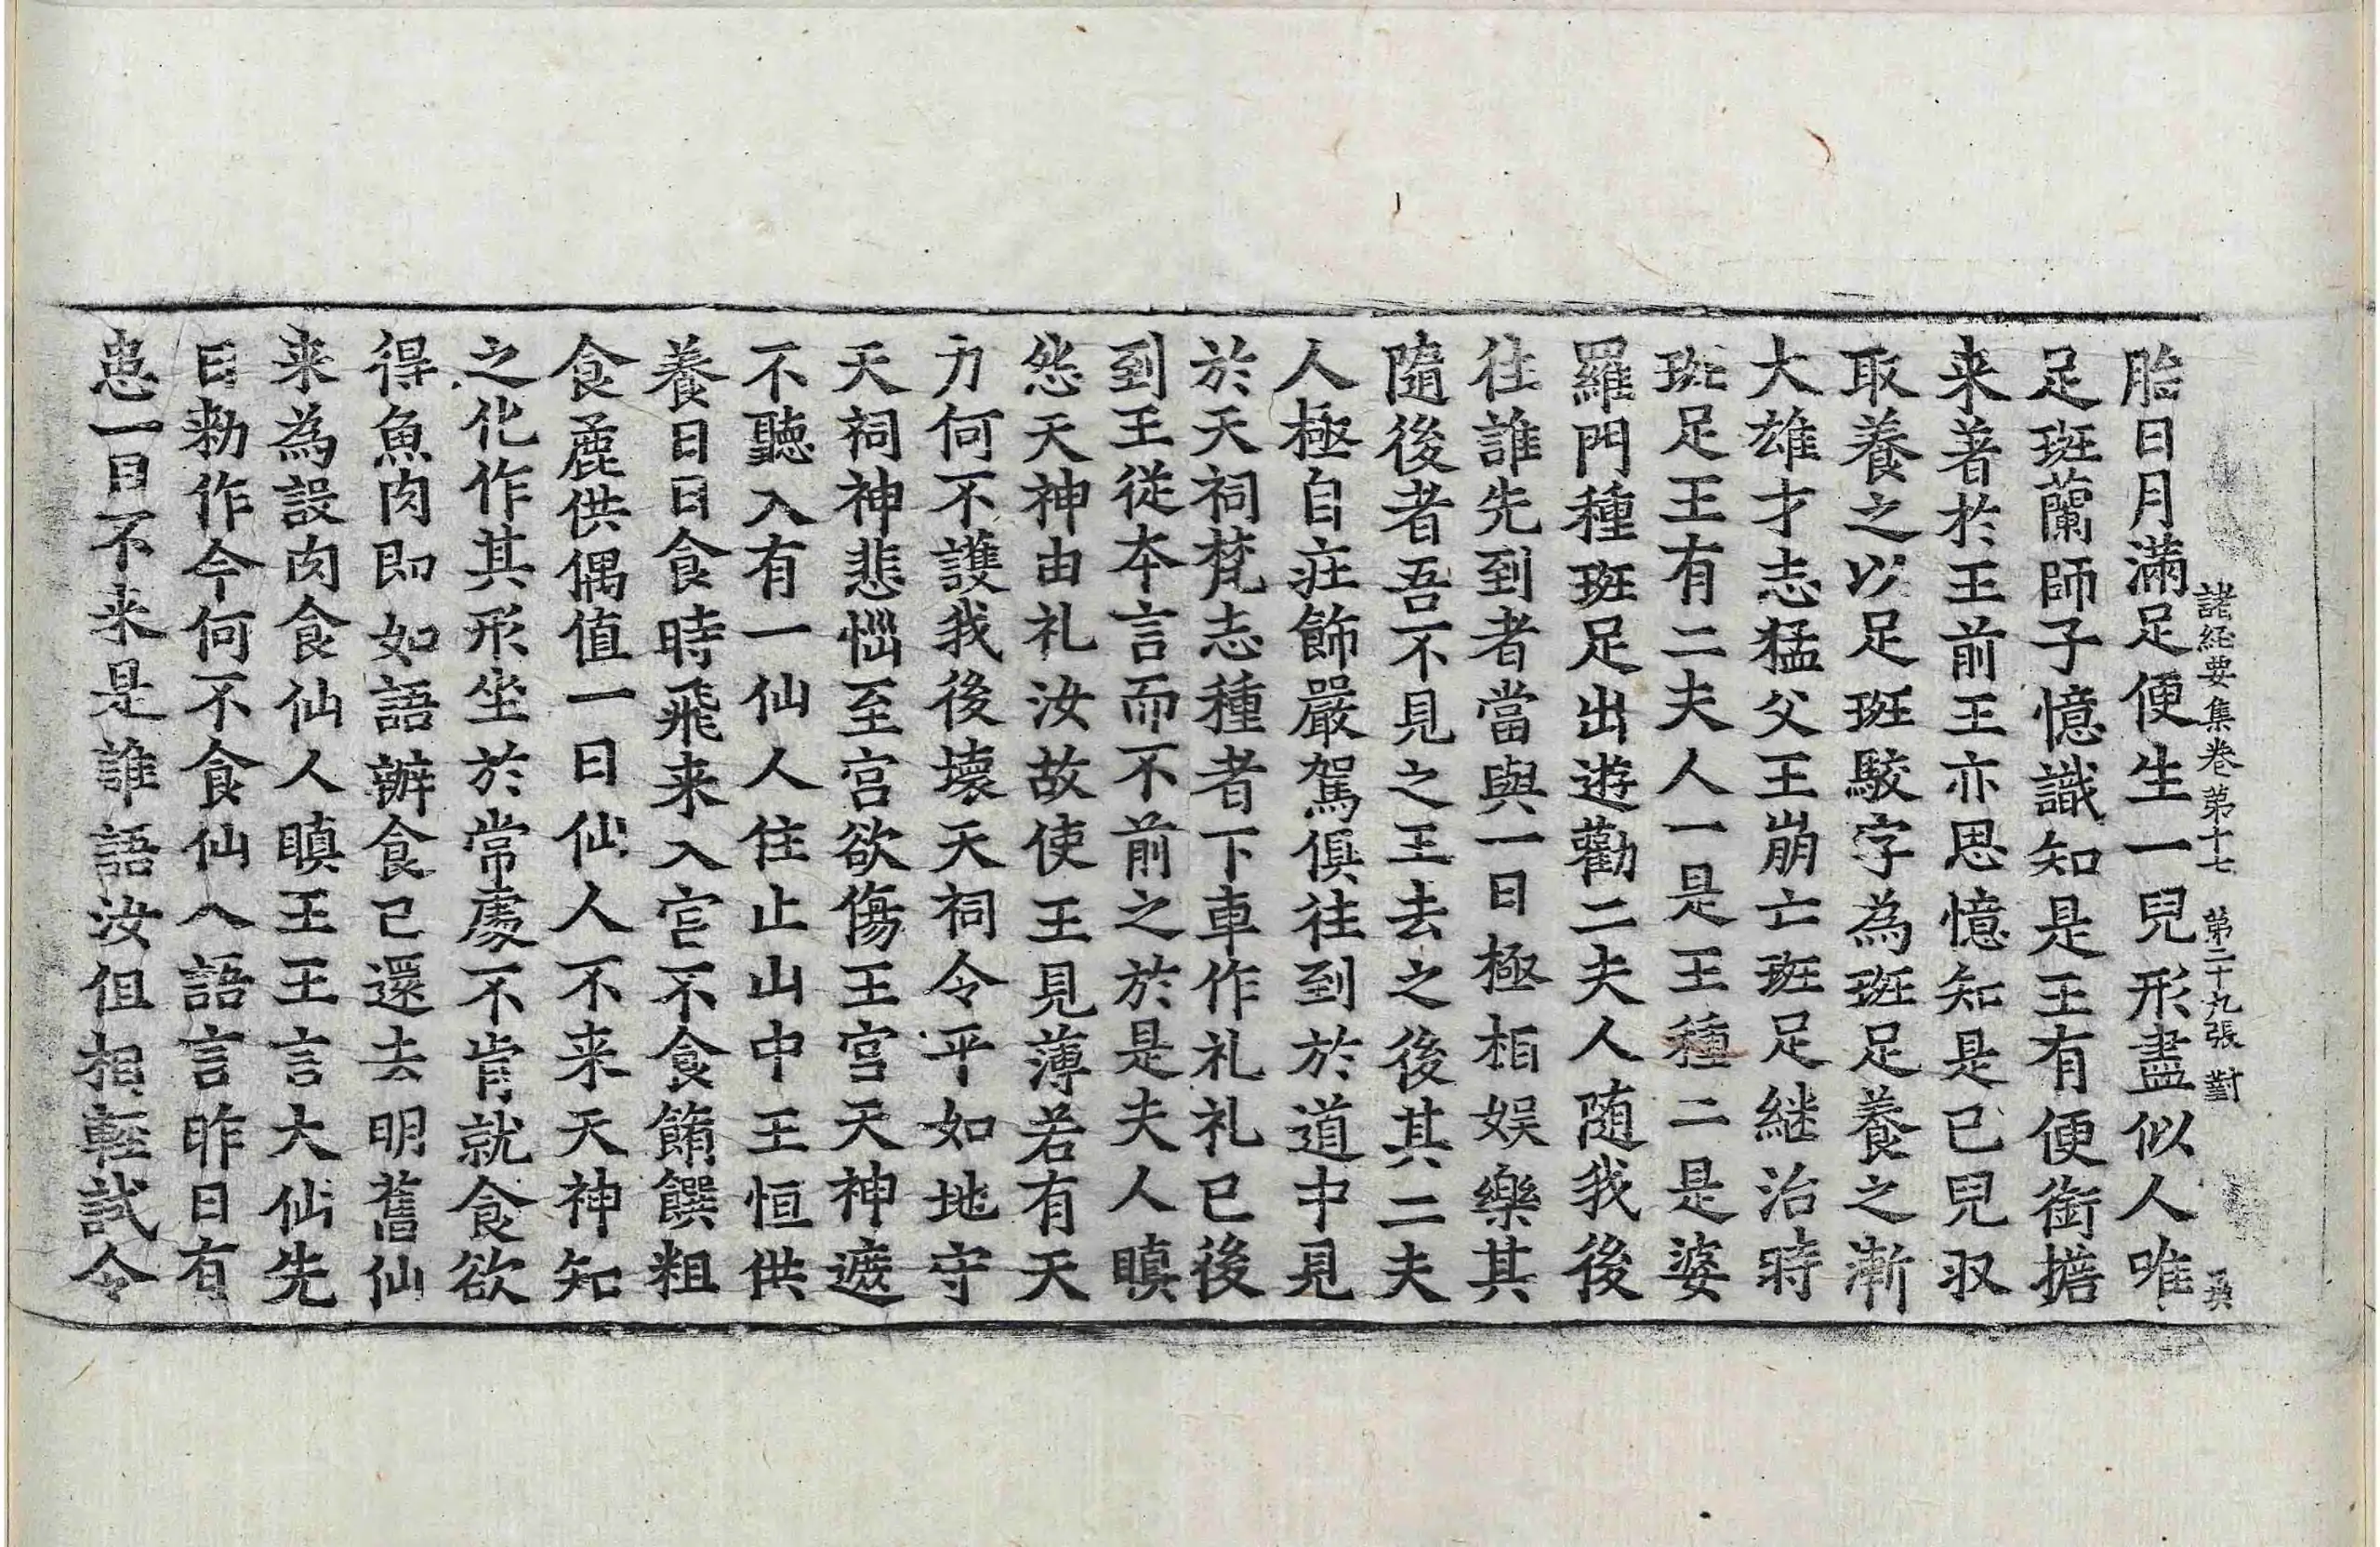 諸経要集卷第十七 第二十九張 對
胎日月滿足便生一兒形盡似人唯
足斑蘭師子憶識知是王有便銜擔
来著扵王前王亦思憶知是已兒収
取養之以足斑駮字為斑足養之漸
大雄才志猛父王崩亡斑足継治時
斑足王有二夫人一是王種二是婆
羅門種斑足出遊勸二夫人随我後
往誰先到者當與一日極相娛樂其
隨後者吾不見之王去之後其二夫
人極自莊飾嚴駕俱往到於道中見
於天祠梵志種者下車作礼礼已後
到王從本言而不前之於是夫人瞋
怨天神由礼汝故使王見薄若有天
力何不護我後壞天祠令平如地守
天祠神悲惱至宫欲傷王宫天神遮
不聽入有一仙人住止山中王恒供
養日日食時飛来入宫不食餚饌粗
食麁供偶值一日仙人不来天神知
之化作其形坐於常處不肯就食欲
得魚肉即如語辦食已還去明舊仙
来為設肉食仙人瞋王王言大仙先
日勑作今何不食仙人語言昨日有
患一日不来是誰語汝但相輕試令